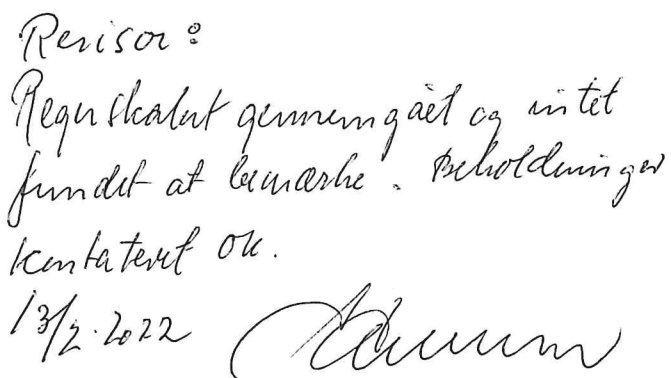 Revisor:
Regnskabet gennemgået og intet
fundet at bemærke. Beholdninger
konstateret ok.
13/2-2022